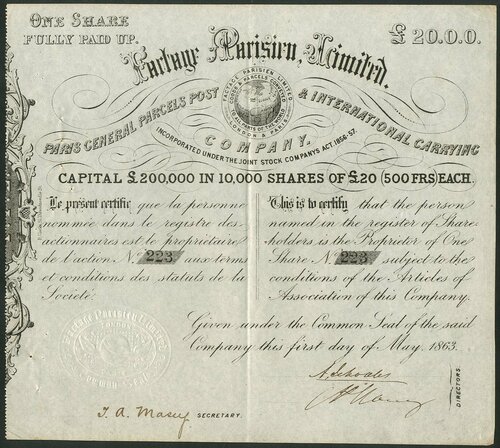 ONE SHARE
FULLY PAID UP.
£20.0.0.
Factage Parisien, Limited.
FACTAGE PARISIEN LIMITED
LONDON & PARIS
PARIS GENERAL PARCELS POST & INTERNATIONAL CARRYING
COMPANY.
INCORPORATED UNDER THE JOINT STOCK COMPANYS ACT, 1856-57.
CAPITAL £200,000 IN 10,000 SHARES OF £20 (500 FRS) EACH.
Le présent certifie que la personne
nommée dans le registre des
actionnaires est le propriétaire
de l'action No. 223 aux terms
et conditions des statuts de la
Société.
This is to certify that the person
named in the register of Share-
holders is the Proprietor of One
Share No. 223 subject to the
conditions of the Articles of
Association of this Company.
Given under the Common Seal of the said
Company this first day of May, 1863.
Factage Parisien Limited
LONDON
Common Seal
DIRECTORS.
SECRETARY.